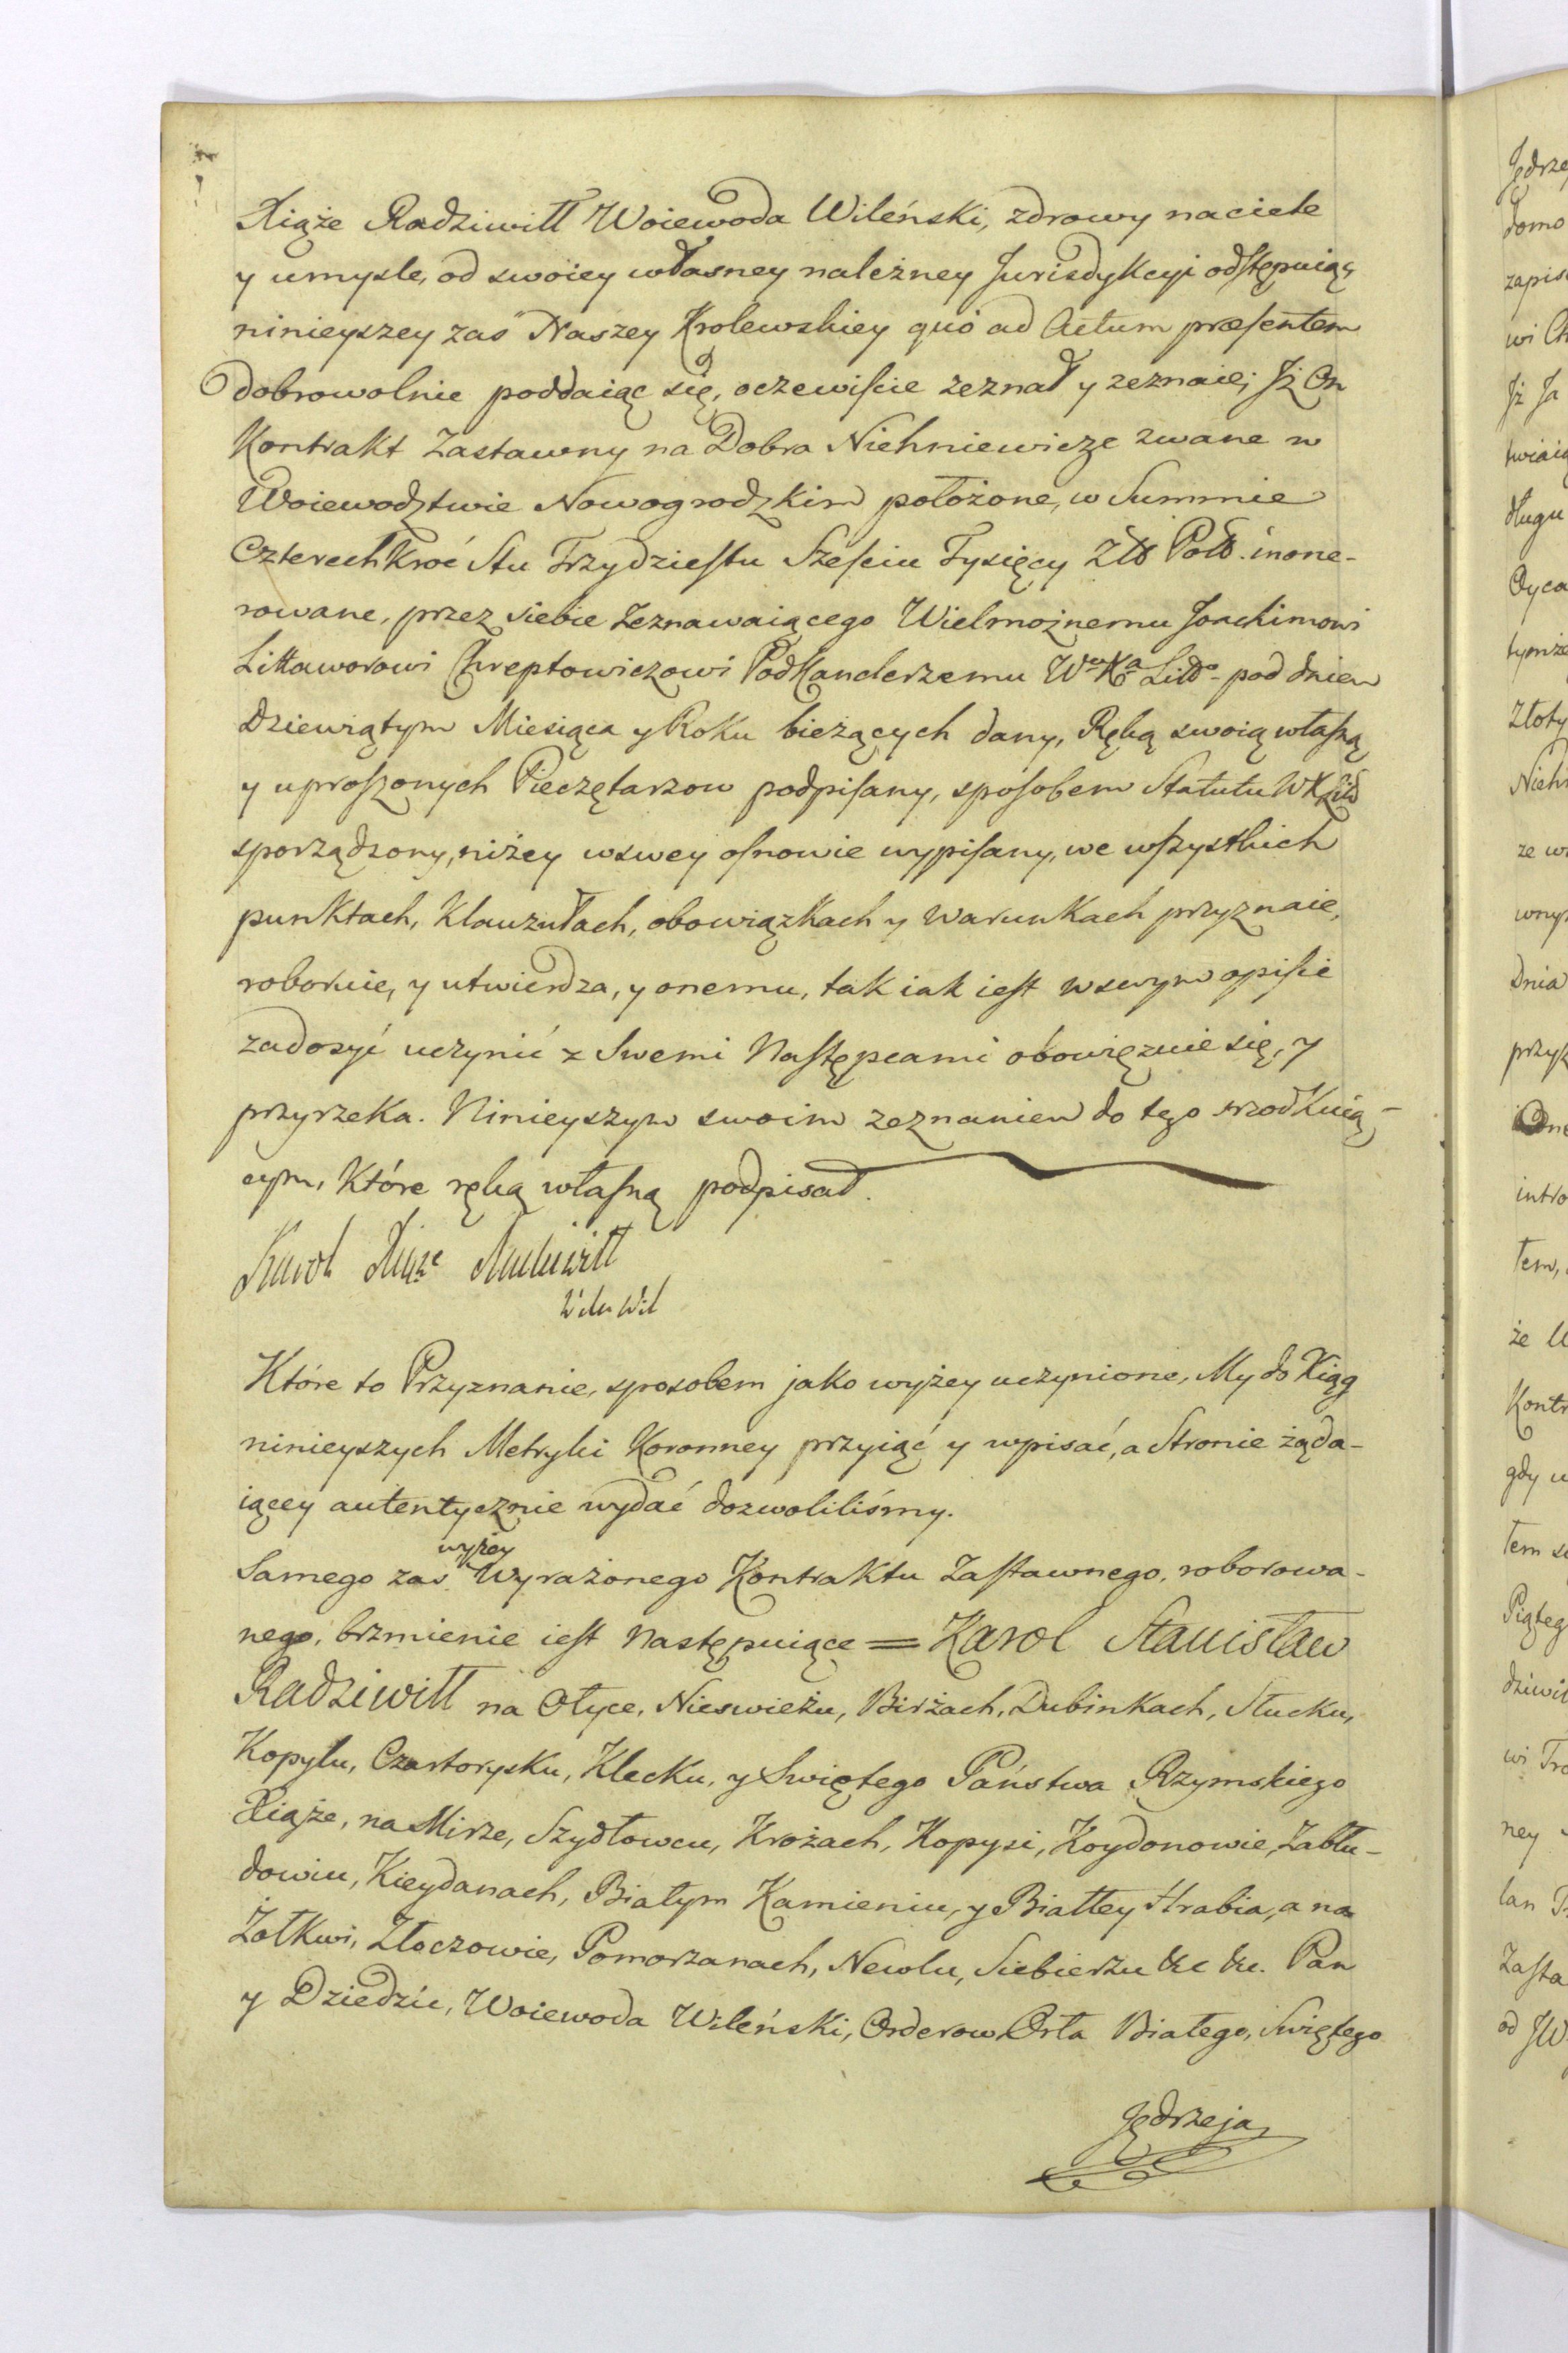 Xiąże Radziwiłł Woiewoda Wileński, zdrowy na ciele
y umysle, od swoiey własney należney Jurisdykcyi odstępuiąc
ninieyszey zaś Naszey Krolewskiey quo ad Actum præsentem
dobrowolnie poddaiąc się, oczewiście zeznał y zeznaie; Jż On
Kontrakt Zastawny na Dobra Niehniewicze zwane w
Woiewodztwie Nowogrodzkim położone, w Summie
Czterechkroć Stu Trzydziestu Sześciu Tysięcy Złł Poll. inone-
rowane, przez siebie Zeznawaiącego Wielmożnemu Joachimowi
Littaworowi Chreptowiczowi PodKanclerzemu Wu Ka Litto pod dniem
Dziewiątym Miesiąca y Roku bieżących dany, Ręką swoią własną
y uproszonych Pieczętarzow podpisany, sposobem Statutu WXLitt
sporządzony, niżey w swey osnowie wypisany, we wszystkich
punktach, Klauzułach, obowiązkach y Warunkach przyznaie,
roboruie, y utwierdza, y onemu, tak iak iest w swym opisie
zadosyć uczynić z Swemi Następcami obowięzuie się, y
przyrzeka. Ninieyszym swoim zeznaniem do tego srzodkuią-
cym, Które ręką własną podpisał.
Karol Xiąze Radziwiłł
W da Wil
Które to Przyznanie, sposobem jako wyżey uczynione, My do Xiąg
ninieyszych Metryki Koronney przyiąć y wpisać, a Stronie żąda-
iącey autentycznie wydać dozwoliliśmy.
Samego zaś wyżey Wyrażonego Kontraktu Zastawnego, roborowa-
nego, brzmienie iest Następuiące = Karol Stanisław
Radziwiłł na Ołyce, Nieswieżu, Birżach, Dubinkach, Słucku,
Kopylu, Czartorysku, Klecku, y Swiętego Państwa Rzymskiego
Xiąże, na Mirze, Szydłowcu, Krożach, Kopysi, Koydonowie, Zabłu-
dowiu, Kieydanach, Białym Kamieniu, y Białłey Hrabia, a na
Żołkwi, Złoczowie, Pomorzanach, Newlu, Siebierzu &c &c. Pan
y Dziedzic, Woiewoda Wileński, Orderow Orła Białego, Swiętego
Jędrzeja